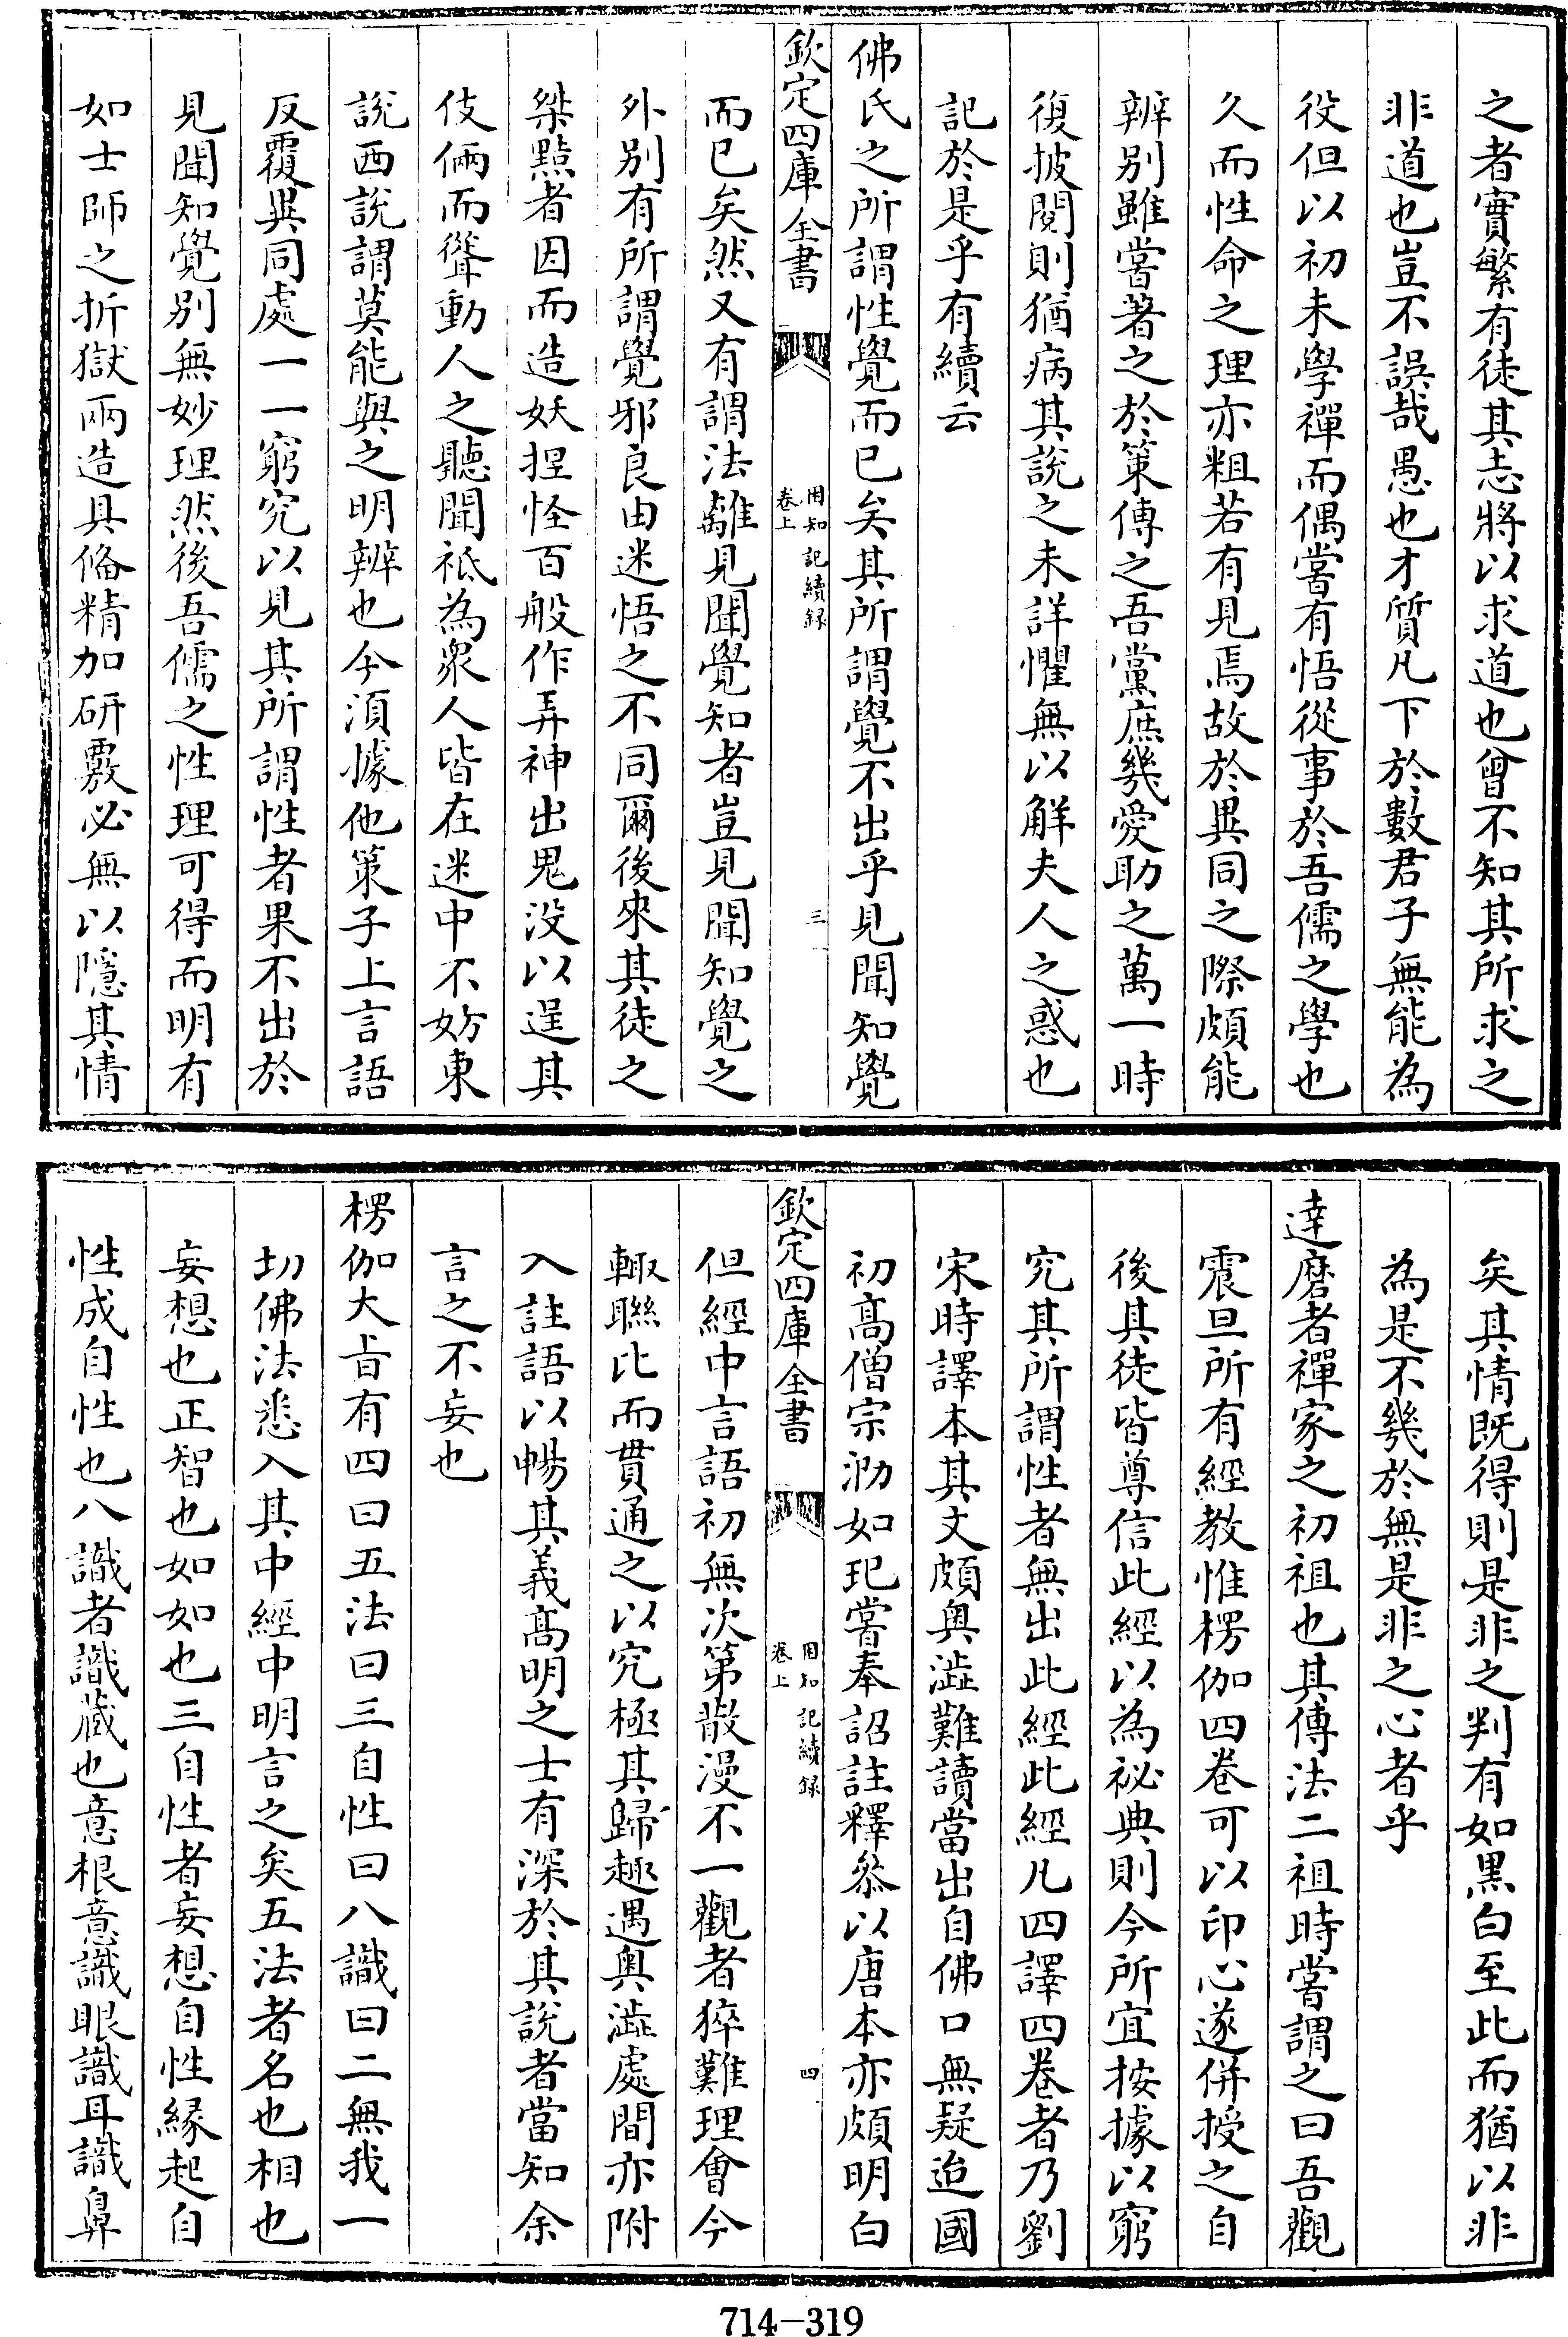 之者實繁有徒其志將以求道也曾不知其所求之
非道也豈不誤哉愚也才質凡下於數君子無能為
役但以初未學禪而偶嘗有悟從事於吾儒之學也
久而性命之理亦粗若有見焉故於異同之際頗能
辨别雖嘗著之於策傳之吾黨庶幾愛助之萬一時
復披閱則猶病其說之未詳懼無以解夫人之惑也
記於是乎有續云
佛氏之所謂性覺而已矣其所謂覺不出乎見聞知覺
欽定四庫全書
困知記續録
卷上
三
而已矣然又有謂法離見聞覺知者豈見聞知覺之
外别有所謂覺邪良由迷悟之不同爾後來其徒之
桀黠者因而造妖捏怪百般作弄神出鬼没以逞其
伎倆而聳動人之聽聞祗為衆人皆在迷中不妨東
說西說謂莫能與之明辨也今湏據他策子上言語
反覆異同處一一窮究以見其所謂性者果不出於
見聞知覺别無妙理然後吾儒之性理可得而明有
如士師之折獄兩造具備精加研覈必無以隱其情
矣其情既得則是非之判有如黒白至此而猶以非
為是不幾於無是非之心者乎
達磨者禪家之初祖也其傳法二祖時嘗謂之曰吾觀
震旦所有經教惟楞伽四卷可以印心遂併授之自
後其徒皆尊信此經以為祕典則今所宜按據以窮
究其所謂性者無出此經此經凡四譯四卷者乃劉
宋時譯本其文頗奥澁難讀當出自佛口無疑迨國
初髙僧宗泐如玘嘗奉詔註釋叅以唐本亦頗明白
欽定四庫全書
困知記續録
卷上
四
但經中言語初無次第散漫不一觀者猝難理會今
輙聯比而貫通之以究極其歸趣遇奥澁處間亦附
入註語以暢其義髙明之士有深於其說者當知余
言之不妄也
楞伽大㫖有四曰五法曰三自性曰八識曰二無我一
切佛法悉入其中經中明言之矣五法者名也相也
妄想也正智也如如也三自性者妄想自性緣起自
性成自性也八識者識藏也意根意識眼識耳識鼻
714-319